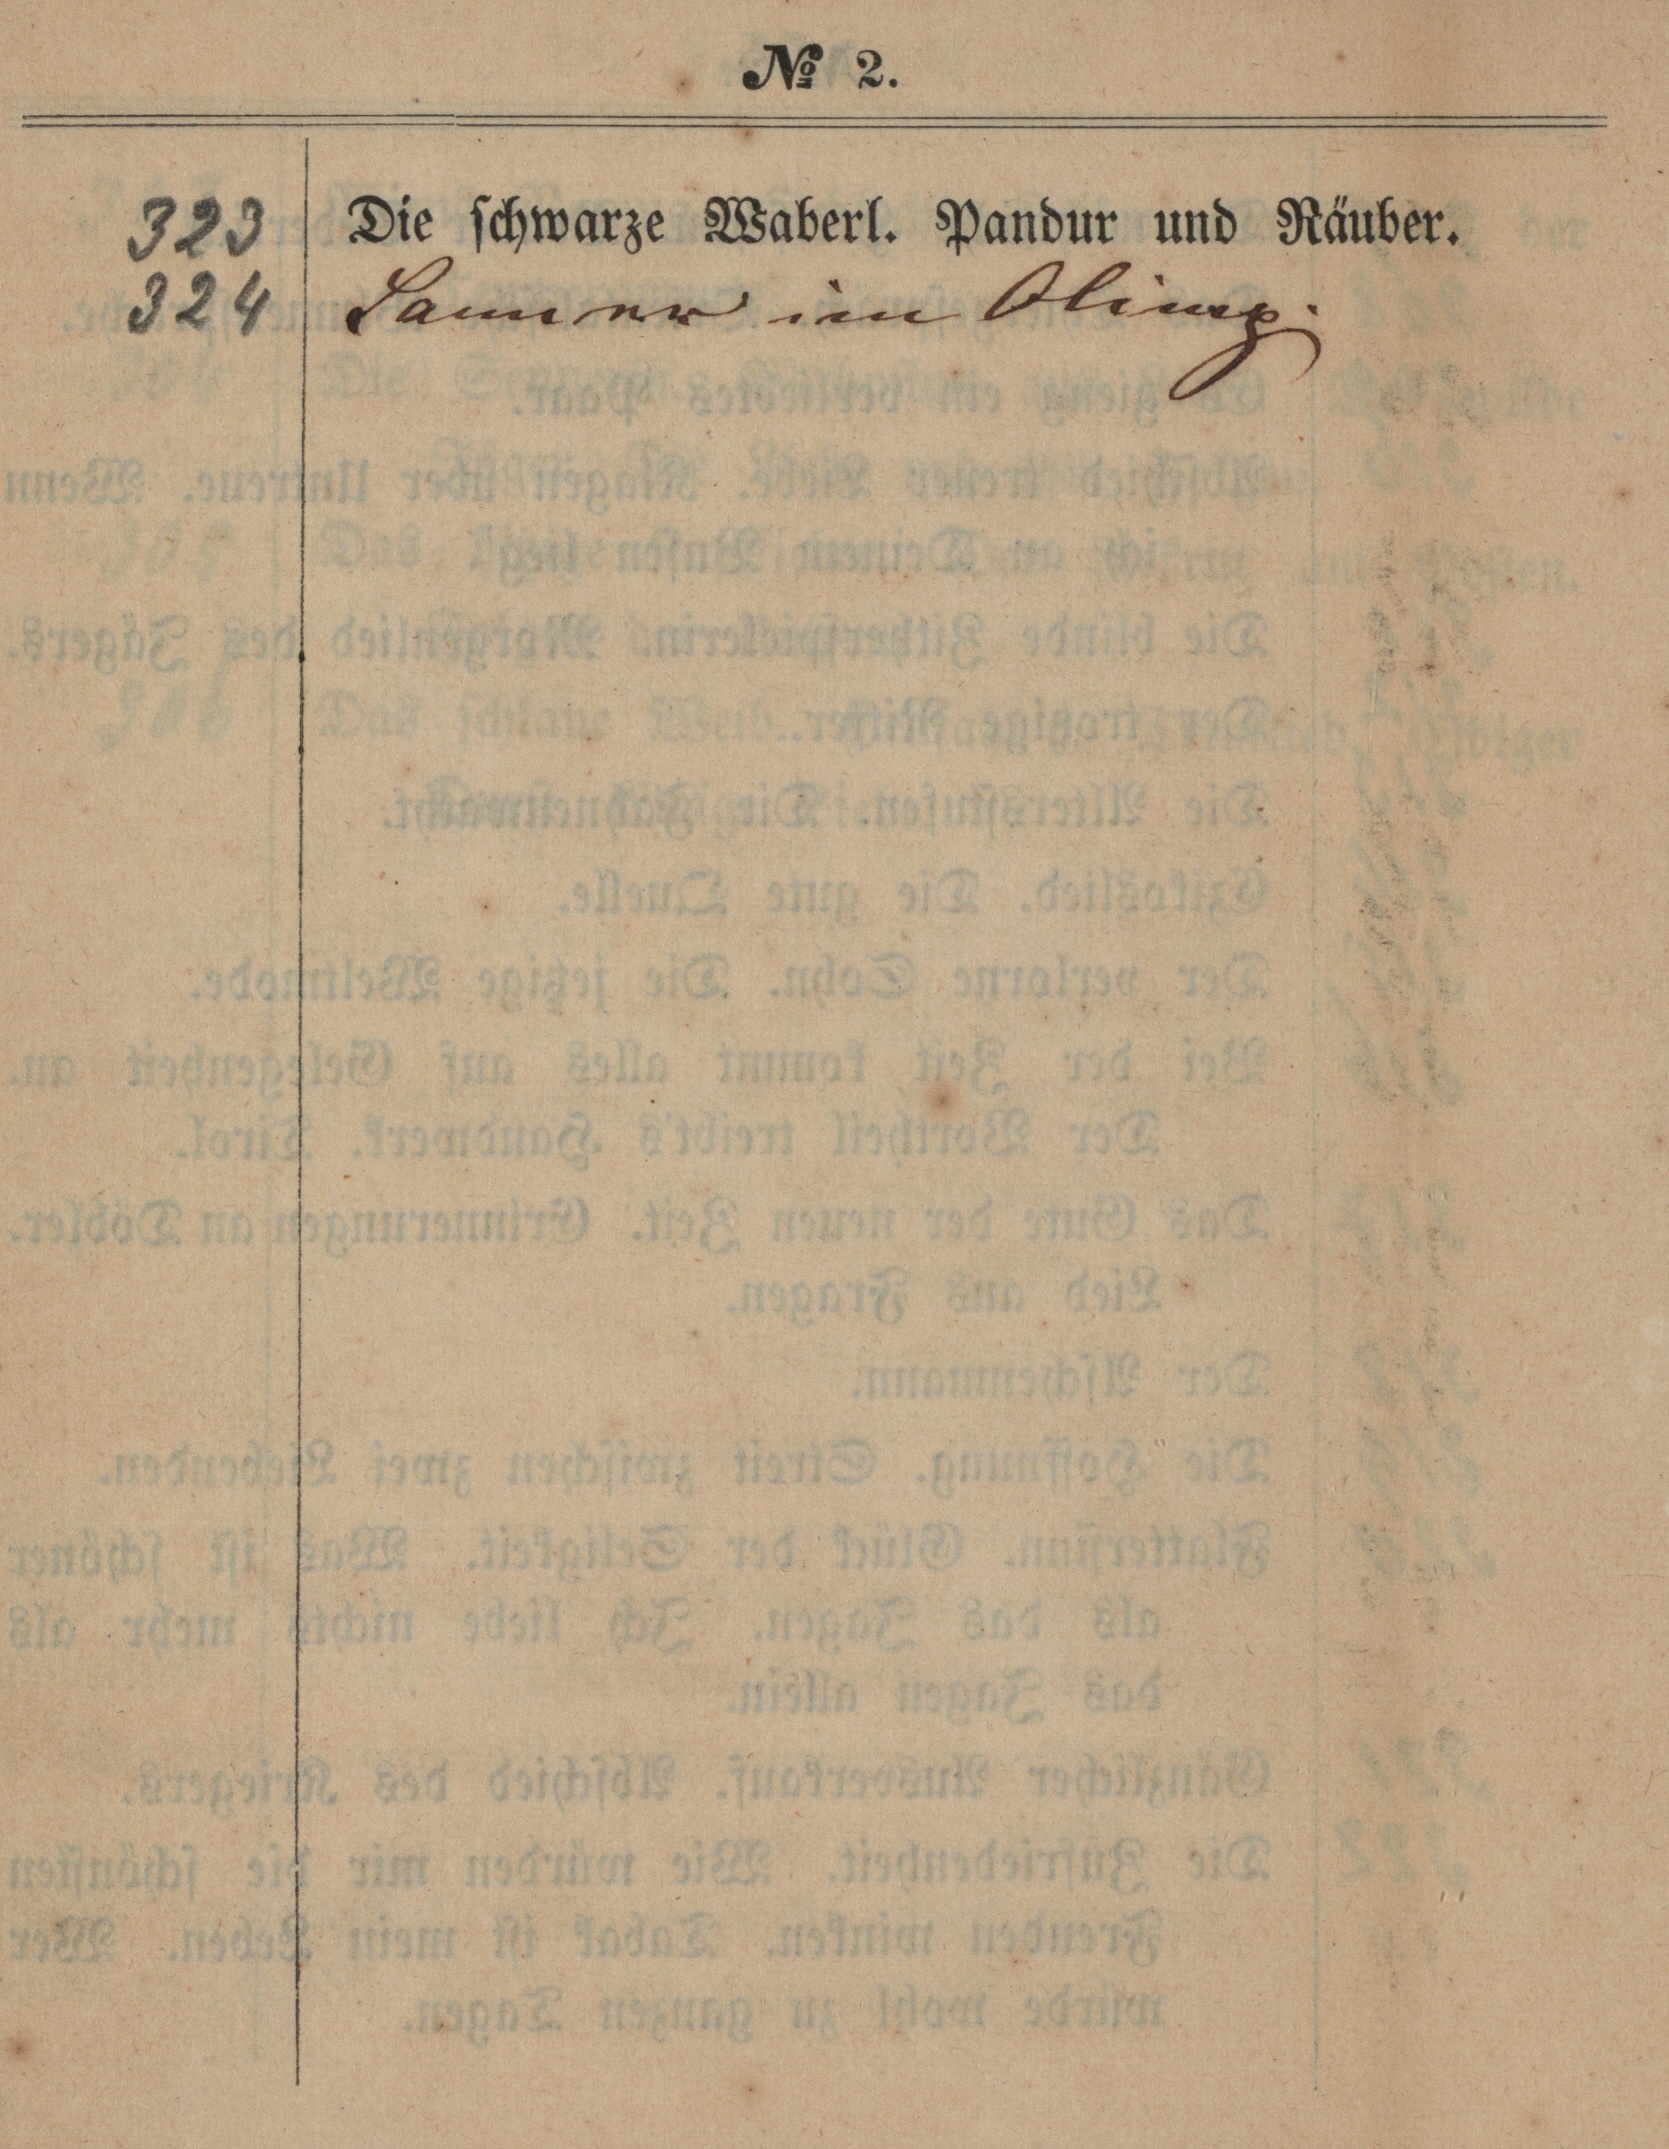 № 2.
323 Die schwarze Waberl. Pandur und Räuber.
324 Lanner im Olimp.